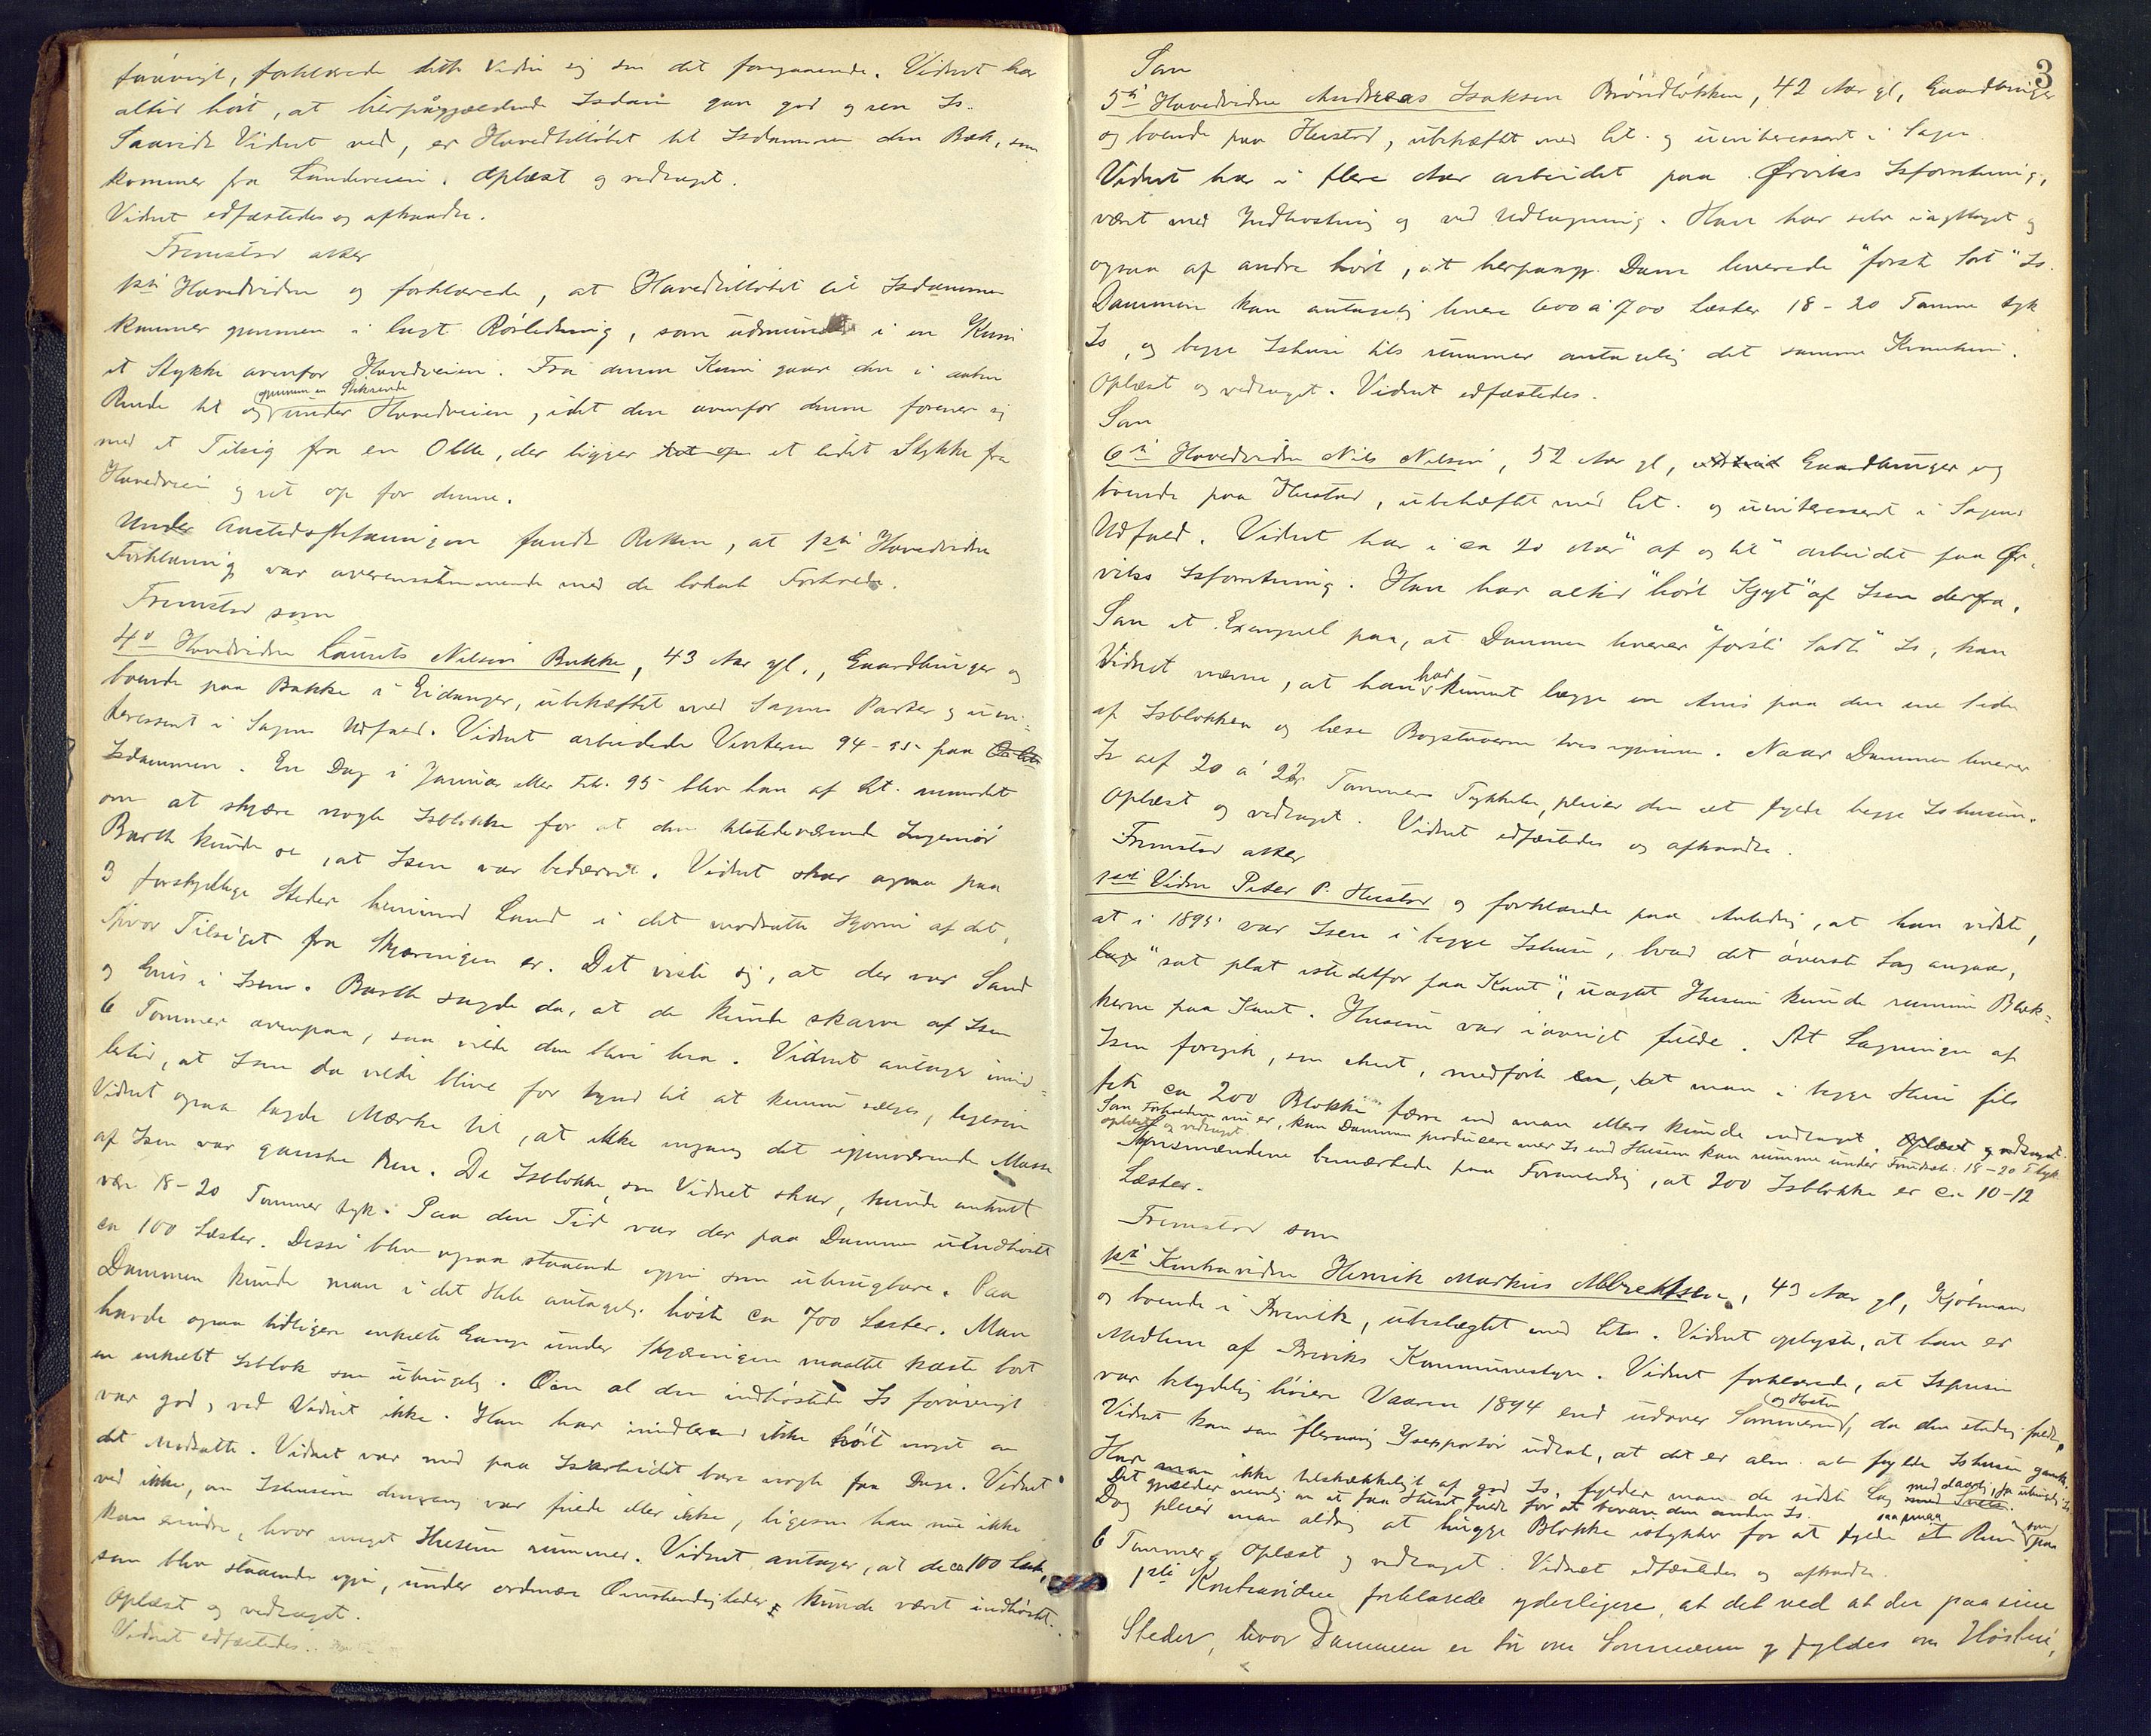 forøvrigt, forklarede dette Vidne sig som det foregaaende. Vidnet har
altid hørt, at herpågjældende Isdam gav god og ren Is.
Saavidt Vidnet ved, er Hovedtilløbet til Isdammen den Bæk, som
kommer fra Landeveien. Oplæst og vedtaget.
Vidnet edfæstedes og aftraadte.
Fremstod atter
1ste Hovedvidne og forklarede, at Hovedtilløbet til Isdammen
kommer gjennem i lagt Rørledning, som udmunder i en Kum
et Stykke ovenfor Hovedveien. Fra denne Kum gaar den i aaben
gjennem en Stikrende
Rende til og under Hovedveien, idet den ovenfor denne forener sig
med et Tilsig fra en Olle, der ligger tet op et lidet Stykke fra
Hovedveien og ret op for denne.
Under Aastedsbefaringen fandt Retten, at 1ste Hovedvidnes
Forklaring var overensstemmende med de lokale Forholde.
Fremstod som
4de Hovedvidne Laurits Nilsen Bakke, 43 Aar gl., Gaardbruger og
boende paa Bakke i Eidanger, ubehæftet med Sagens Parter og uin-
teressert i Sagens Udfald. Vidnet arbeidede Vinteren 94-95 paa
Isdammen. En Dag i Januar eller Feb. 95 blev han af Cit. anmodet
om at skjære nogle Isblokke for at den tilstedeværende Ingeniør
Barth kunde se, at Isen var bedærvet. Vidnet skar ogsaa paa
3 forskjellige Steder henimod Land i det modsatte Hjørne af det,
hvor Tilsiget fra Skjæringen er. Det viste sig, at der var Sand
og Grus i Isen. Barth sagde da, at de kunde skave af Isen
6 Tommer ovenpaa, saa vilde den blive bra. Vidnet antager imid-
lertid, at Isen da vilde blive for tynd til at kunne sælges, ligesom
Vidnet ogsaa lagde Mærke til, at ikke engang det igjenværende Masse
af Isen var ganske ren. De Isblokke, som Vidnet skar, kunde antart
være 18-20 Tommer tyk. Paa den Tid var der paa Dammen uindhøstet
ca 100 Læster. Disse blev ogsaa staaende igjen som ubrugbare. Paa
Dammen kunde man i det Hele antagelig høste ca 700 Læster. Man
havde ogsaa tidligere enkelte Gange under Skjæringen maattet kaste bort
en enkelt Isblok som ubrugelig. Om al den indhøstede Is forøvrigt
var god, ved Vidnet ikke. Han har imidlertid ikke hørt noget om
det Modsatte. Vidnet var med paa Isarbeidet bare nogle faa Dage. Vidnet
ved ikke, om Ishusene dengang var fulde eller ikke, ligesom han nu ikke
kan erindre, hvor meget Husene rummer. Vidnet antager, at de ca 100 Læster,
som blev staaende igjen, under ordinære Omstendigheder kunde været indhøstet.
Oplæst og vedtaget.
Vidnet edfæstedes.
3
Som
5te Hovedvidne Andreas Isaksen Brøndløkken, 42 Aar gl, Gaardbruger
og boende paa Hustad, ubehæftet med Cit. og uinteressert i Sagen.
Vidnet har i flere Aar arbeidet paa Ørviks Isforretning,
været med Indhøsting og ved Udtagning. Han har selv iagttaget og
ogsaa af andre hørt, at herpaagj. Dam leverede "første Sort" Is.
Dammen kan antagelig levere 600 à 700 Læster 18-20 Tomme tyk
Is, og begge Ishuse tils rummer antagelig det samme Kvantum.
Oplæst og vedtaget. Vidnet edfæstedes.
Som
6te Hovedvidne Nils Nilsen, 52 Aar gl, Gaardbruger og
boende paa Hustad, ubehæftet med Cit. og uinteressert i Sagens
Udfald. Vidnet har i ca 20 Aar "af og til" arbeidet paa Ør-
viks Isforretning. Han har altid "hørt Gjyt" af Isen derfra.
Som et Exempel paa, at Dammen leverer "første Sort" Is, kan
har
Vidnet nævne, at han kunnet lægge en Avis paa den ene Side
af Isblokken og læse Bogstaverne tvers igjennem. Naar Dammen leverer
Is af 20 à 22 Tommers Tykkelse, pleier den at fylde begge Ishusene.
Oplæst og vedtaget. Vidnet edfæstedes og aftraadte.
Fremstod atter
1ste Vidne Peter P. Hustad og forklarede paa Anledning, at han vidste,
at i 1895 var Isen i begge Ishuse, hvad det øverste Lag angaar,
lagt "sat plat istedetfor paa Kant", uagtet Husene kunde rumme Blok-
kerne paa Kant. Husene var iøvrigt fulde. At Lagningen af
Isen foregik, som anført, medførte, at man i begge Huse tils
fik ca 200 Blokke færre end man ellers kunde indtaget. Oplæst og vedtaget.
Som Forholdene nu er, kan Dammen producere mer Is end Husene kan rumme under Forudsæt. 18-20 T. tyk
oplæst og vedtaget.
Skjønsmændene bemærkede paa Foranledning, at 200 Isblokke er ca 10-12
Læster.
Fremstod som
1ste Kontravidne Henrik Markus Albrektsen, 43 Aar gl, Kjøbmand
og boende i Brevik, ubeslægtet med Cit. Vidnet oplyste, at han er
Medlem af Breviks Kommunestyre. Vidnet forklarede, at Isprisen
og Høsten
var betydelig høiere Vaaren 1894 end udover Sommeren, da den stadig faldt.
Vidnet kan som flerårig Isexportør udtale, at det er alm. at fylde Ishusene ganske.
Har man ikke tilstrækkeligt af god Is, fylder man de sidste Lag med daarlig, ja ubrugelig Is
Det gjælder nemlig om at faa Huset fuldt for at bevare den anden Is.
Dog pleier man aldrig at hugge Blokke istykker for at fylde et Rum paa
6 Tommer. Oplæst og vedtaget. Vidnet edfæstedes og aftraadte.
1ste Kontravidne forklarede yderligere, at det ved at der paa sine
Steder, hvor Dammen er tør om Sommeren og fyldes om Høsten,